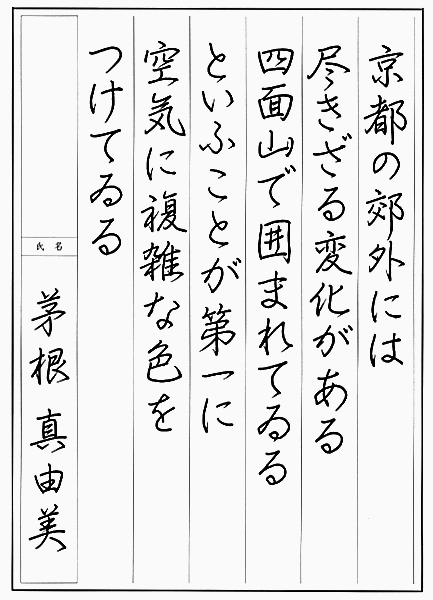 京都の郊外には
尽きざる変化がある
四面山で囲まれてゐる
といふことが第一に
空気に複雑な色を
つけてゐる
氏名
茅根 真由美